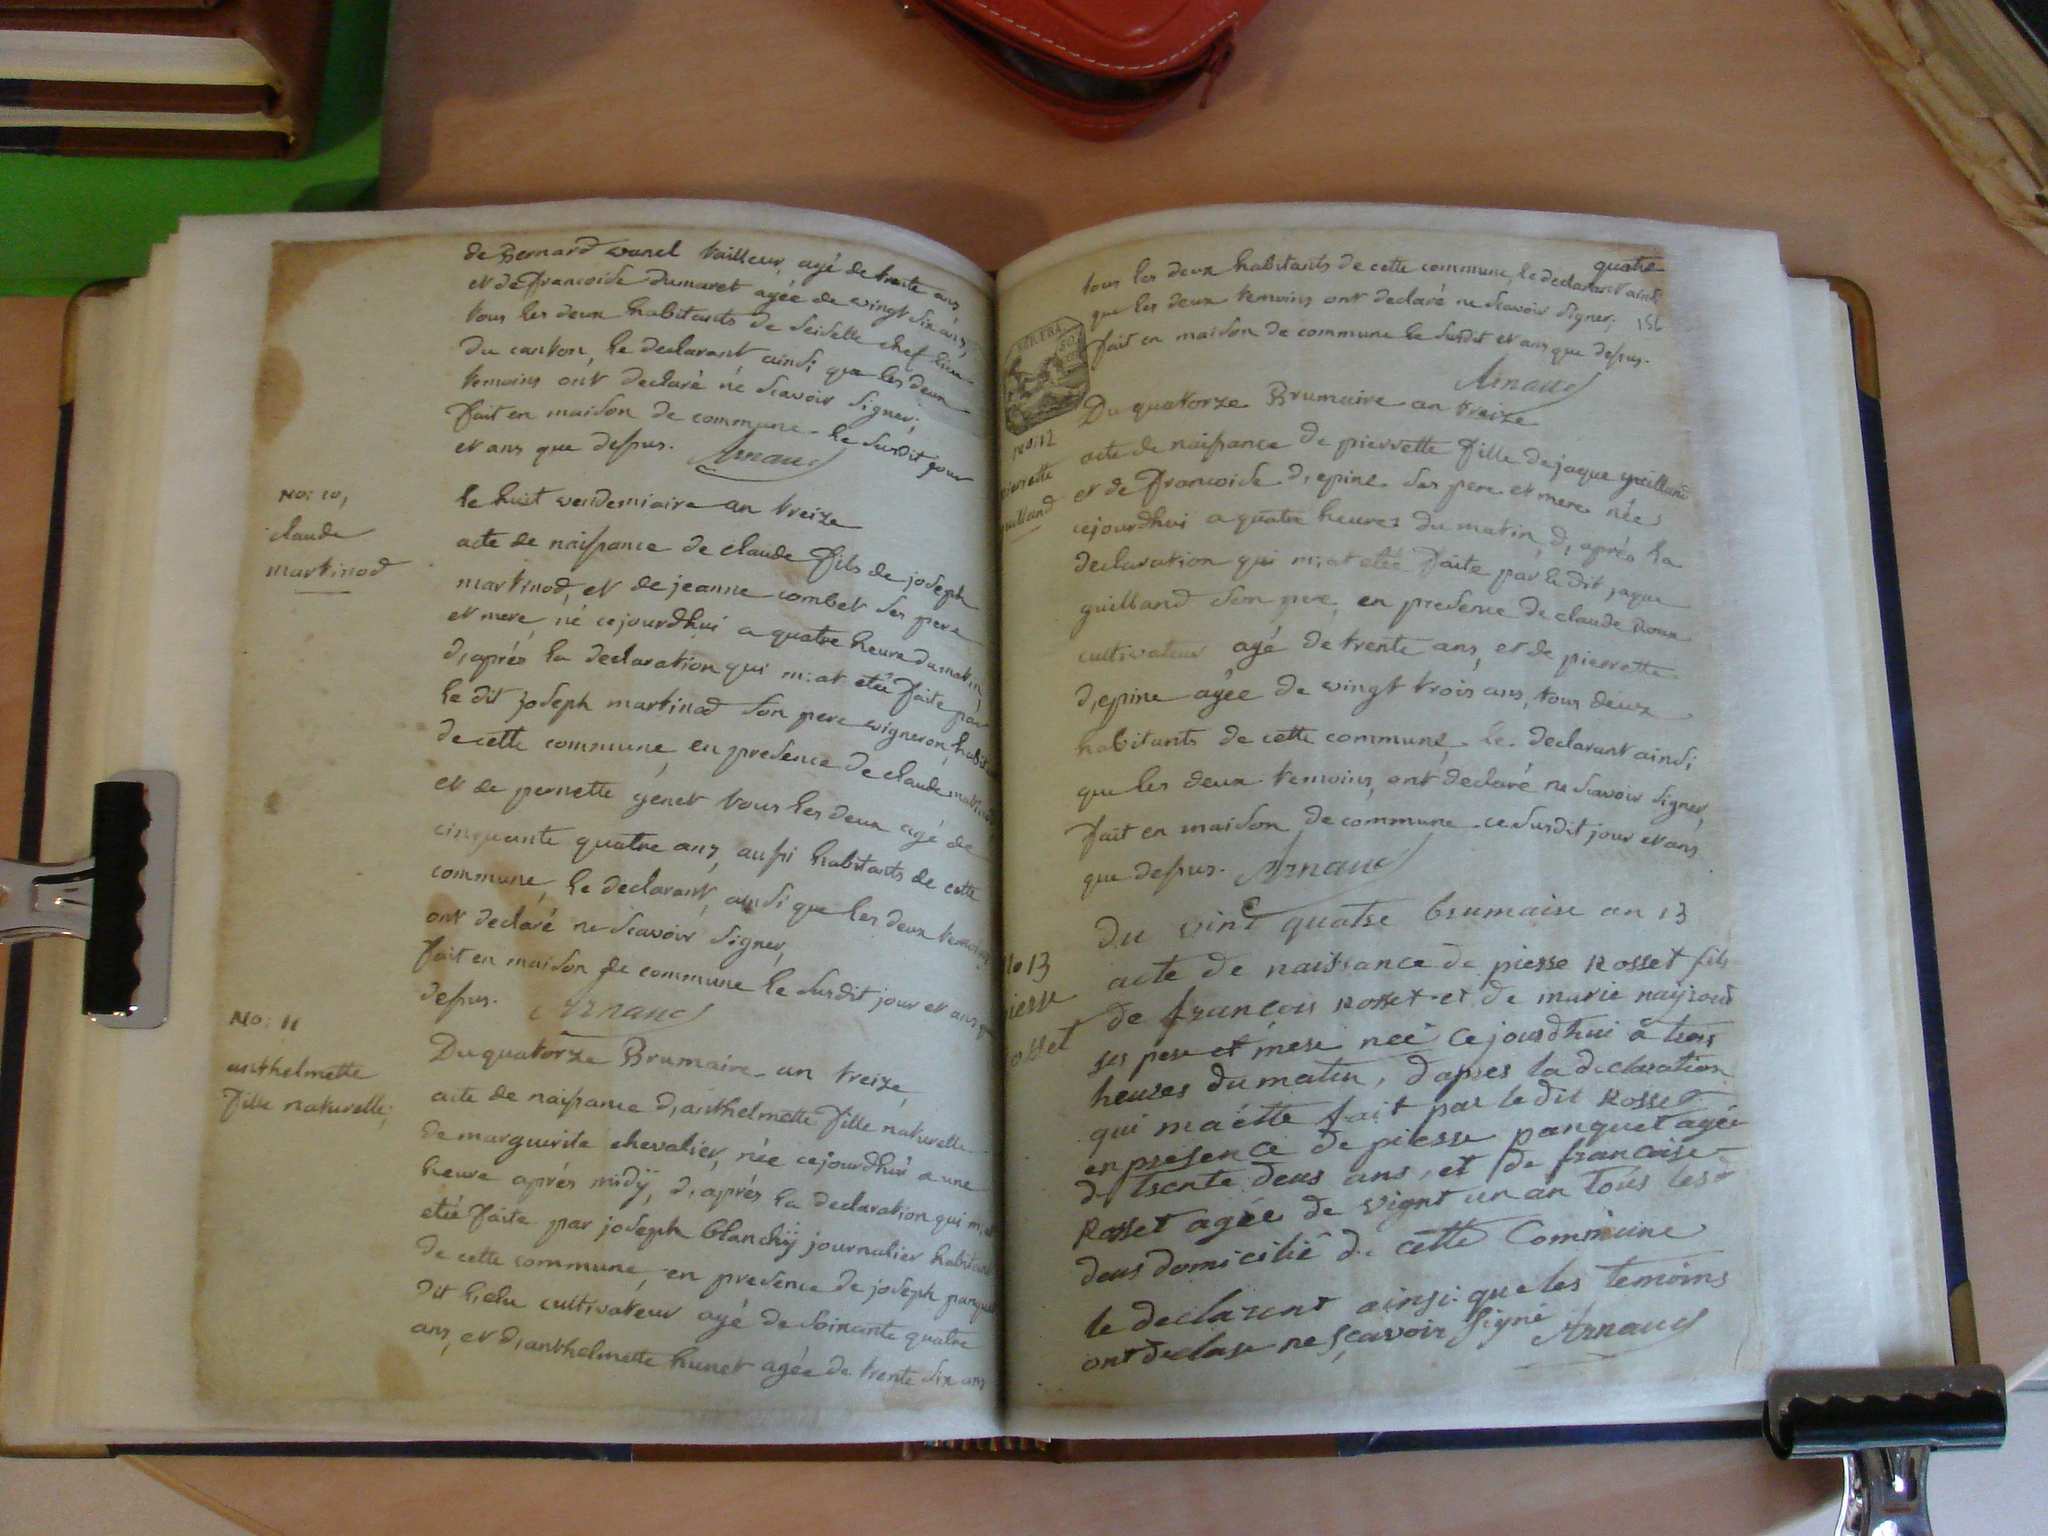 de Bernard vunel tailleur, agé de trente ans,
et de francoise dumaret agée de vingt six ans,
tous les deux habitants de seiselle chef lieu
du canton, le declarant ainsi que les deux
temoins ont declaré né scavoir signer;
fait en maison de commune le susdit jour
et ans que dessus. Arnaud
No: 10,
claude
martinod
le huit vendemiaire an treize
acte de naissance de claude fils de joseph
martinod, et de jeanne combet ses pere
et mere, né cejourdhui a quatre heure du matin,
d,aprés la declaration qui m:at etéé faite par
le dit joseph martinod son pere vigneron,
de cette commune, en presence de claude
et de pernette genet tous les deux agé de
cinquante quatre ans, aussi habitants de cette
commune, le declarant, ainsi que les deux temoins
ont declaré ne scavoir signer,
fait en maison de commune le susdit jour et ans
dessus. Arnaud
No: 11
anthelmette
fille naturelle;
Du quatorze Brumaire an treize,
acte de naissance d,anthelmette fille naturelle
de marguerite chevalier, née cejourdhui a une
heure aprés midÿ, d,aprés la declaration qui m,at
etéé faite par joseph blanchÿ journalier habitant
de cette commune, en presence de joseph panquet
dit cultivateur agé de soixante quatre
ans, et d,anthelmette hunet agée de trente six ans
quatre
tous les deux habitants de cette commune, le declarant ainsi
que les deux temoins ont declaré ne scavoir signer; 156
fait en maison de commune le susdit et ans que dessus.
Arnaud
no: 12
pierrette
guilland
Du quatorze Brumaire an treize
acte de naissance de pierrette fille de jaque guilland
et de francoise d,epine ses pere et mere née
cejourdhui a quatre heures du matin, d,aprés la
declaration qui m:at etéé faite par le dit jaque
guilland son pere, en presence de claude Roux
cultivateur agé de trente ans, et de pierrette
d,epine agée de vingt trois ans, tous deux
habitants de cette commune, le declarant ainsi
que les deux temoins, ont declaré ne scavoir signer,
fait en maison de commune ce susdit jour et ans
que dessus. Arnaud
No 13
pierre
rosset
Du vint quatre brumaire an 13
acte de naissance de pierre Rosset fils
de françois Rosset et de marie nayroud
ses pere et mere née Cejourdhui à trois
heures du matin, d'apres la declaration
qui ma étte fait par le dit Rosset
en presence de pierre panquet agée
de trente deus ans, et de francoise
Rosset agée de vignt un an tous les
deus domicilié de cette Commune
le declarent ainsi que les temoins
ont declare ne sçavoir signé Arnaud